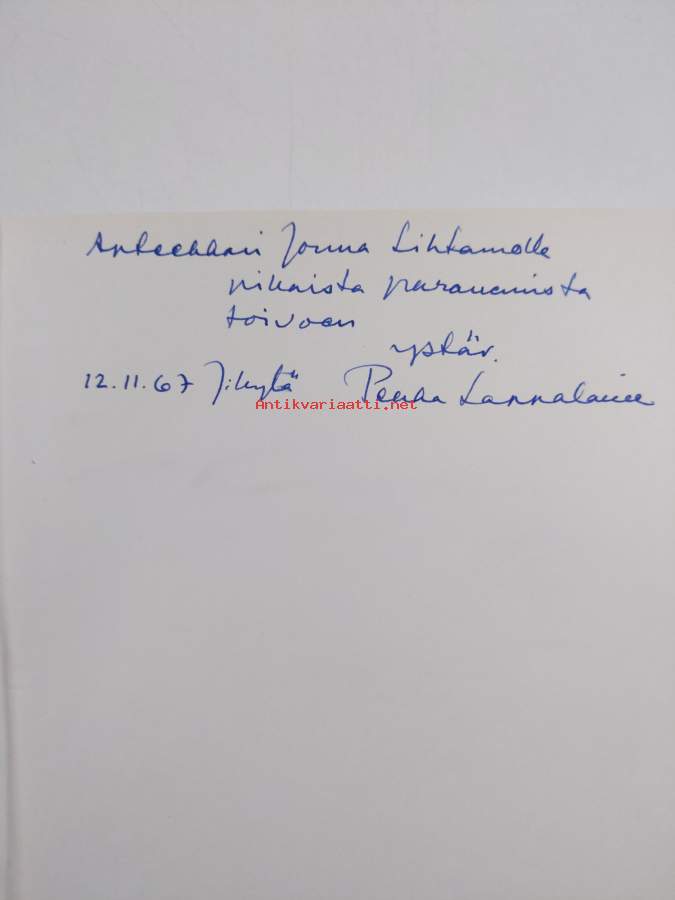 Jorma Lihtamolle
pikaista paranemista
toivoen
ystäv.
12.11.67 Pekka Lappalainen
Antikvariaatti.net